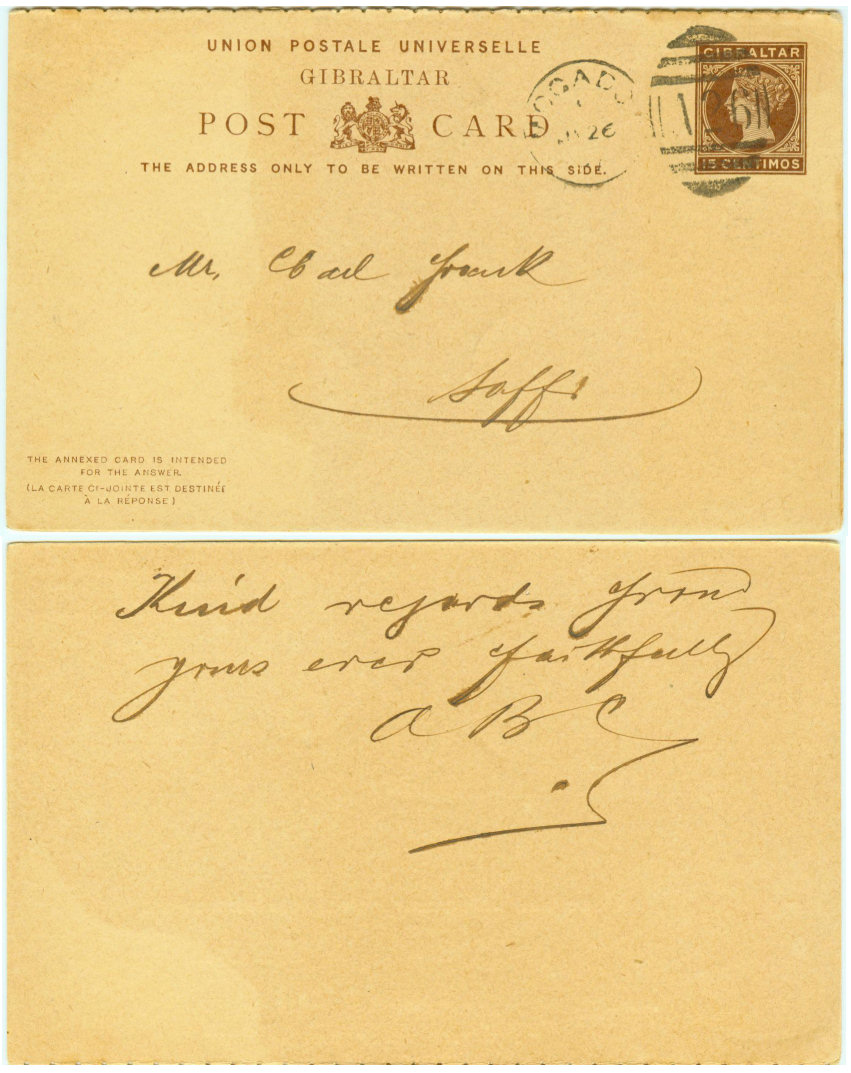 UNION POSTALE UNIVERSELLE
GIBRALTAR
POST CARD
THE ADDRESS ONLY TO BE WRITTEN ON THIS SIDE.
MOGADO
26
A26
GIBRALTAR
15 CENTIMOS
Mr. Carl
Saffi
THE ANNEXED CARD IS INTENDED
FOR THE ANSWER.
(LA CARTE CI-JOINTE EST DESTINÉE
À LA RÉPONSE)
Kind regards from
yours ever faithfully
A B C